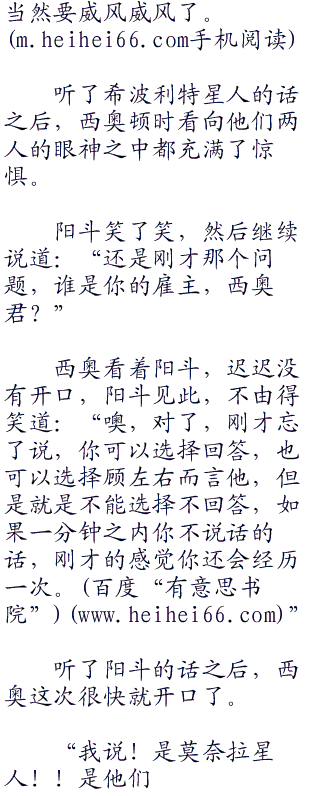 当然要威风威风了。
(m.heihei66.com手机阅读)
听了希波利特星人的话
之后，西奥顿时看向他们两
人的眼神之中都充满了惊
惧。
阳斗笑了笑，然后继续
说道：“还是刚才那个问
题，谁是你的雇主，西奥
君？”
西奥看着阳斗，迟迟没
有开口，阳斗见此，不由得
笑道：“噢，对了，刚才忘
了说，你可以选择回答，也
可以选择顾左右而言他，但
是就是不能选择不回答，如
果一分钟之内你不说话的
话，刚才的感觉你还会经历
一次。(百度“有意思书
院”)(www.heihei66.com)”
听了阳斗的话之后，西
奥这次很快就开口了。
“我说！是莫奈拉星
人！！是他们